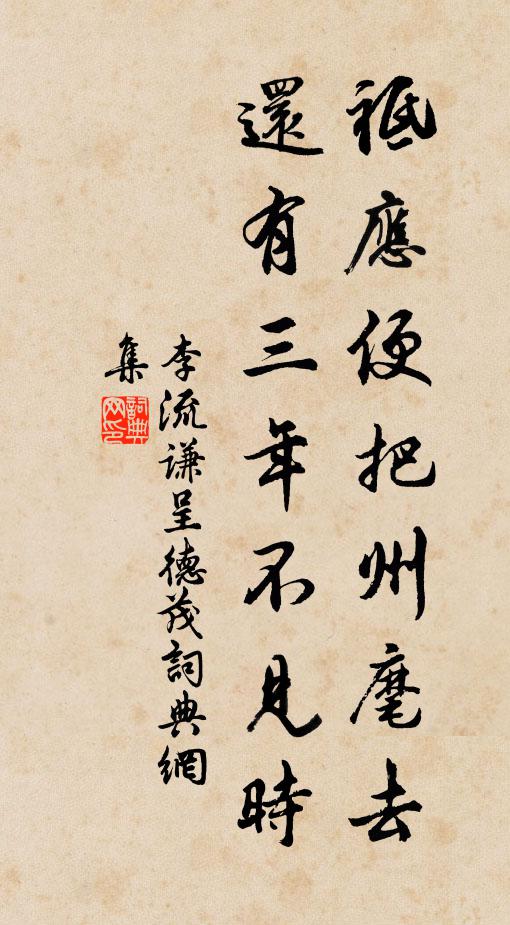 祗應便把州麾去
還有三年不見時
李流謙呈德茂詞典網
集
詞典網印